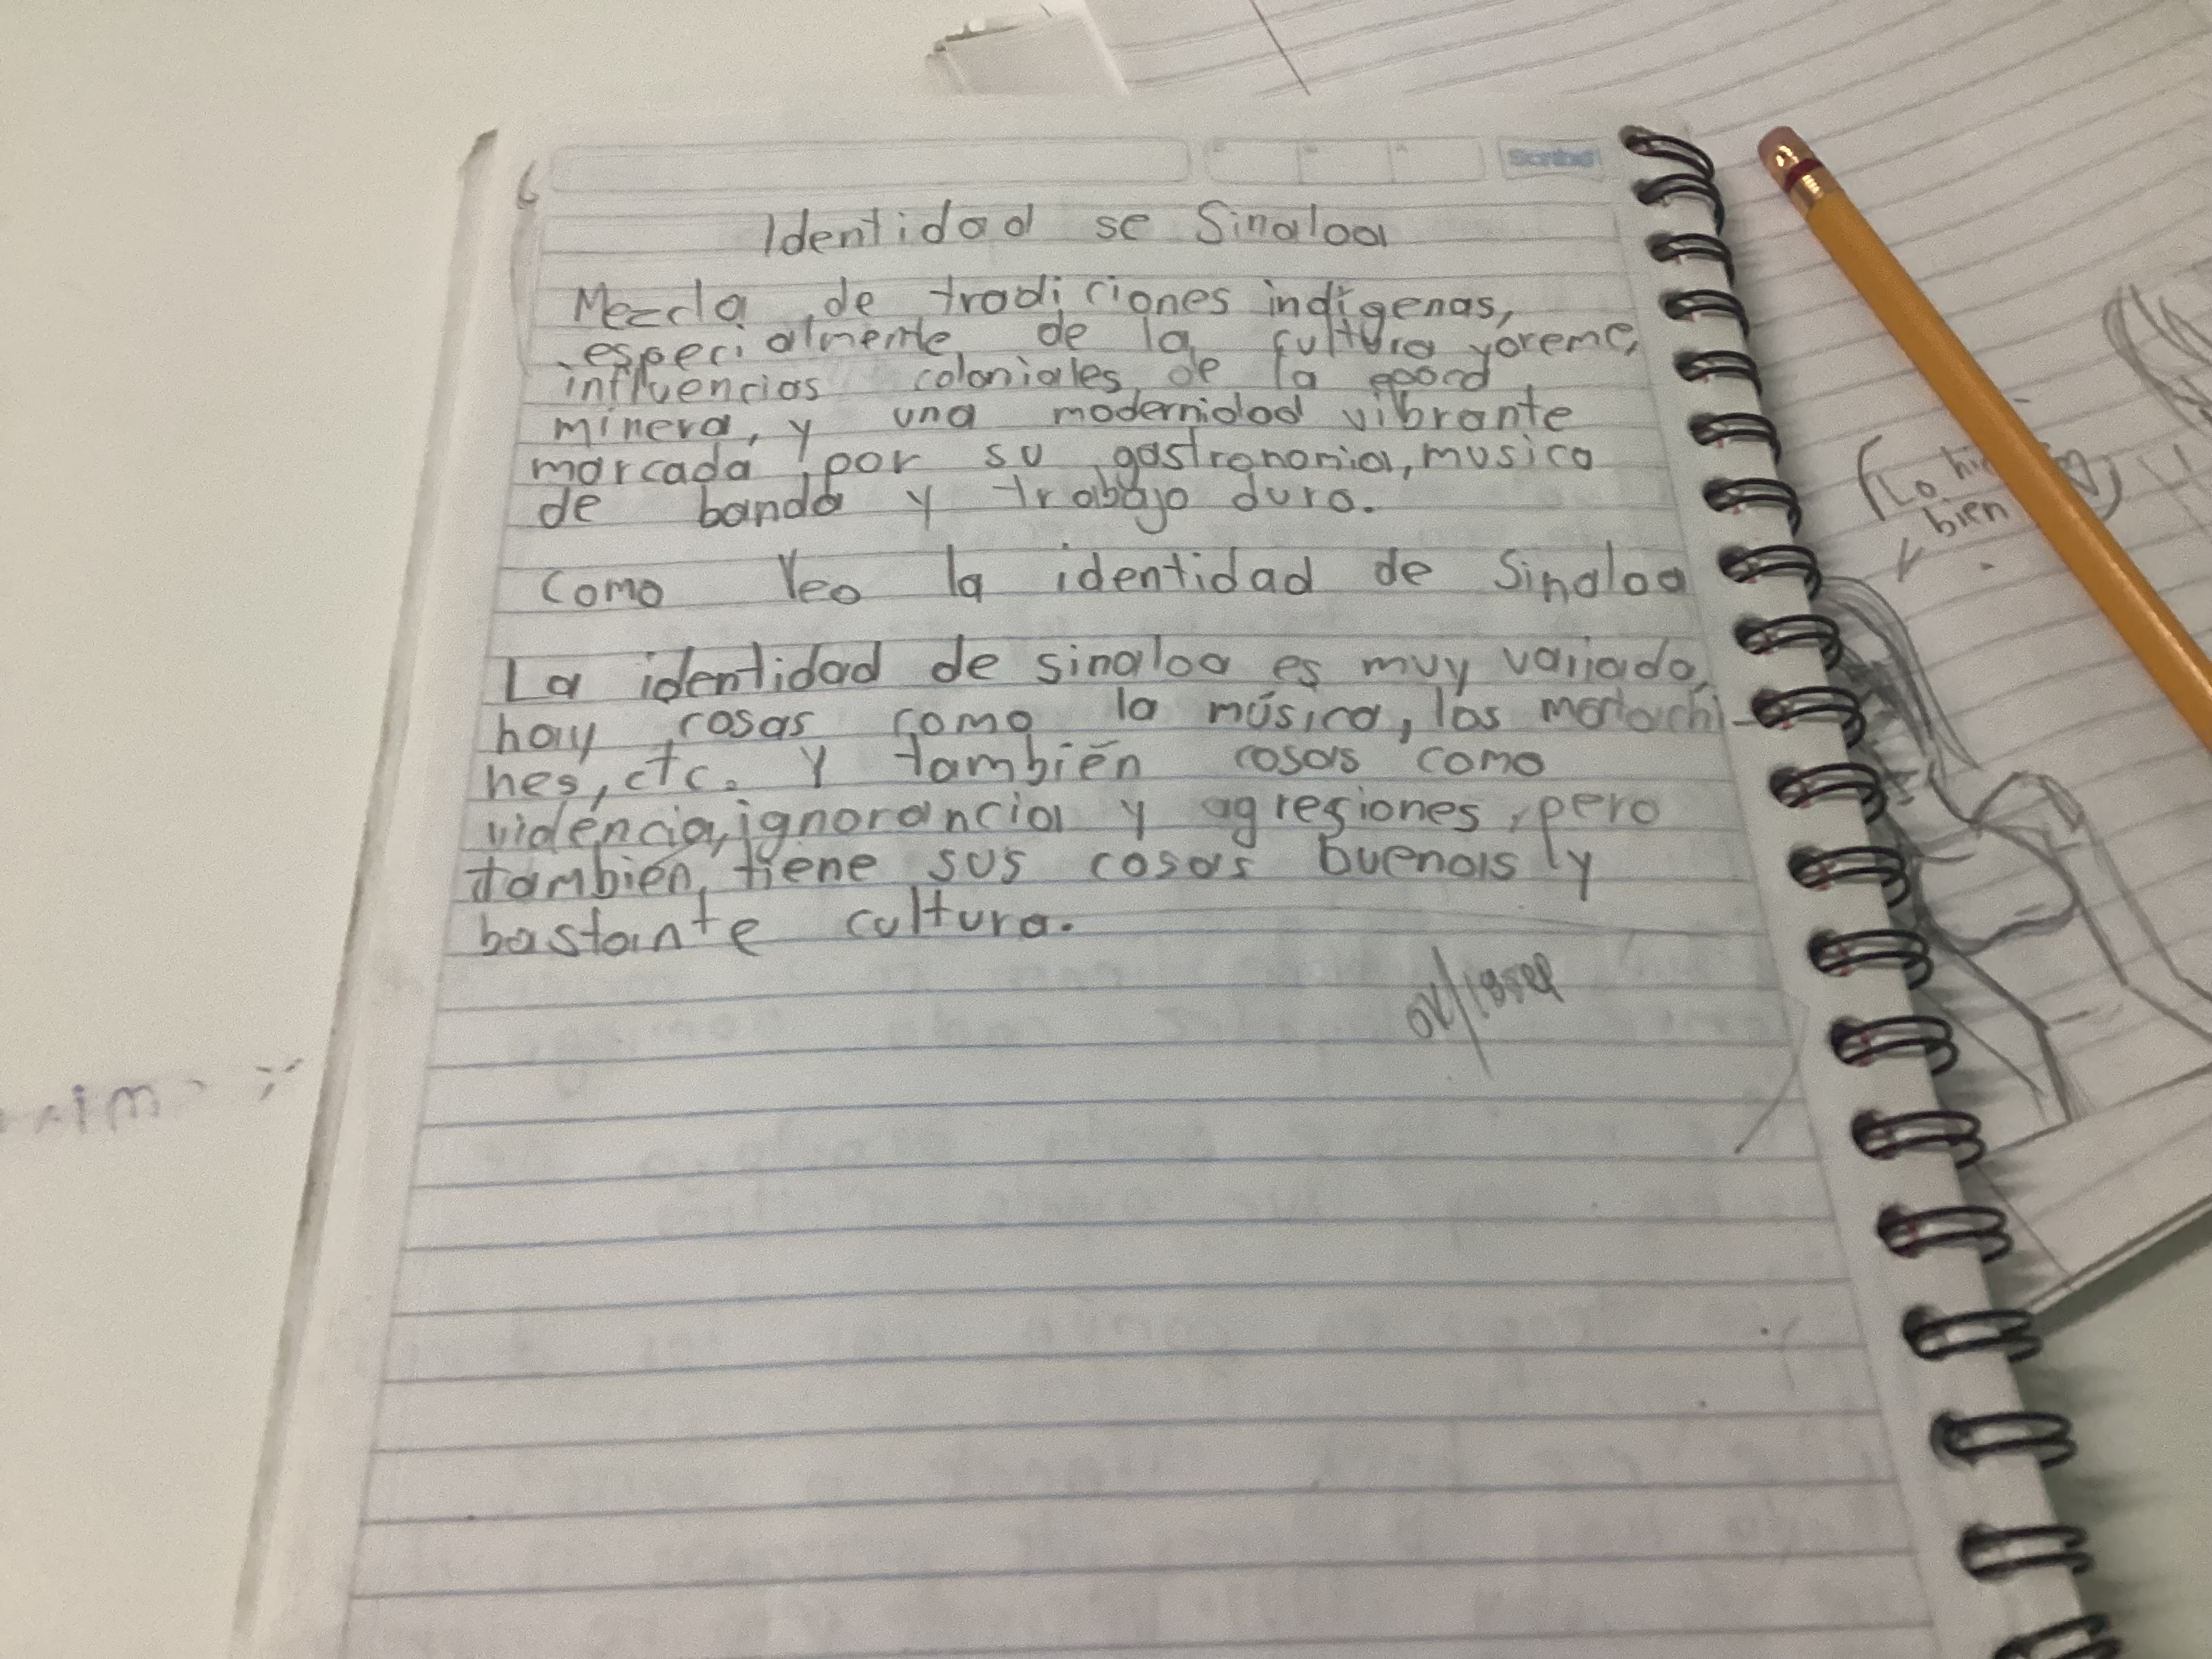 Scribe
Identidad se Sinaloa
Mezcla de tradiciones indígenas,
especialmente de la cultura yoreme,
influencias coloniales de la epoca
minera, y una modernidad vibrante
marcada por su gastronomia, musica
de banda y trabajo duro.
Como Veo la identidad de Sinaloa
La identidad de sinaloa es muy variada,
hay cosas como la música, los matachi-
nes, etc. Y también cosas como
violencia, ignorancia y agresiones, pero
también, tiene sus cosas buenas y
bastante cultura.
Lo
bien